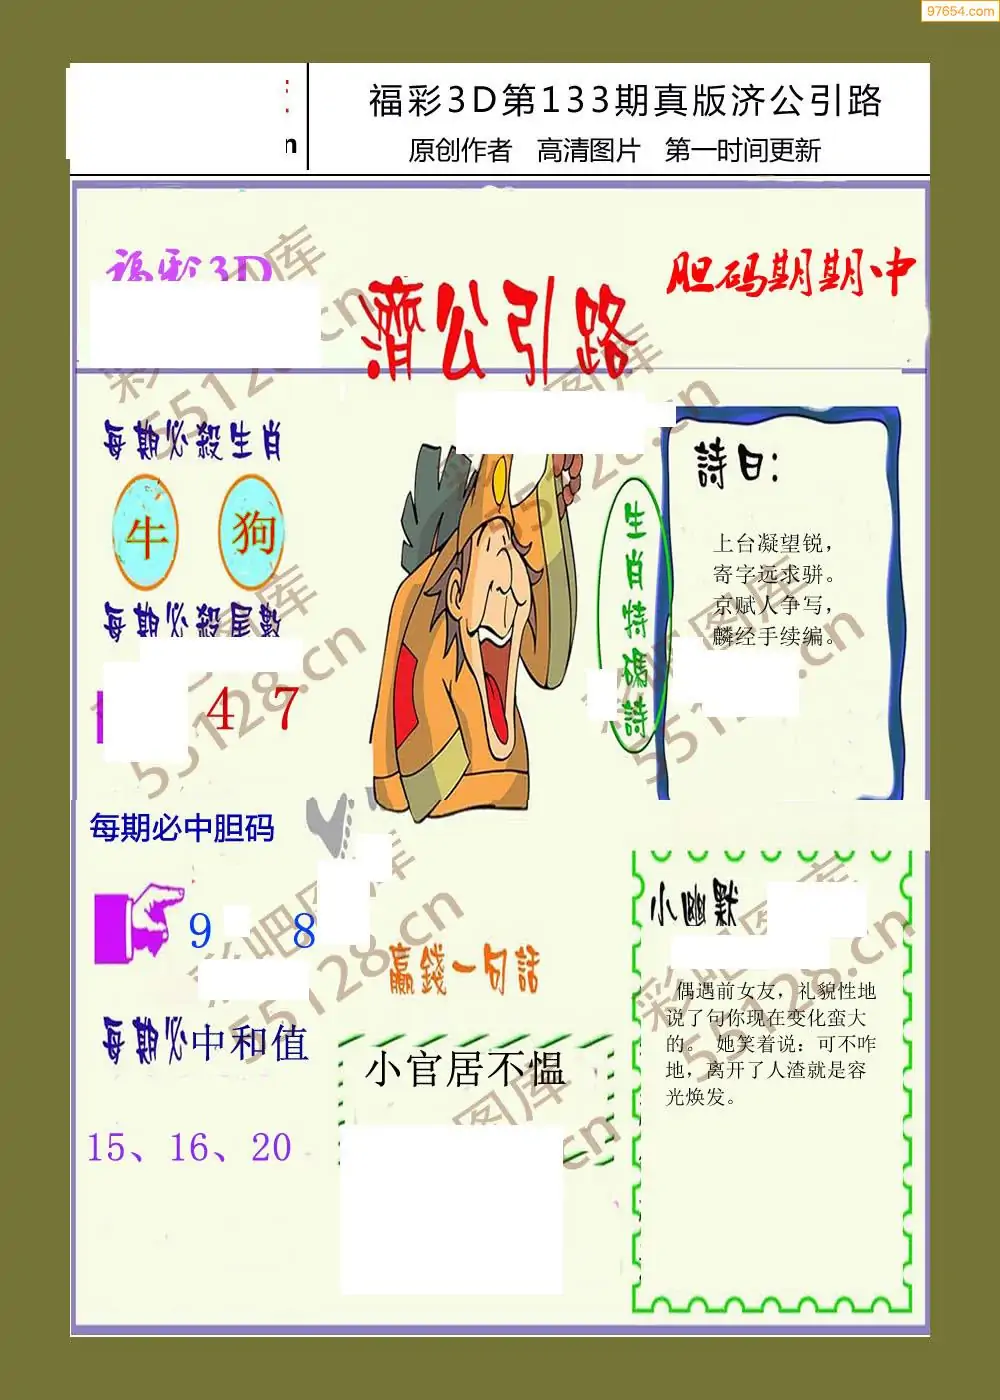 97654.com
n
福彩3D第133期真版济公引路
原创作者 高清图片 第一时间更新
福彩3D
濟公引路
胆码期期中
每期必殺生肖
牛 狗
每期必殺尾數
4 7
生肖特碼詩
詩曰:
上台凝望锐，
寄字远求骈。
京赋人争写，
麟经手续编。
每期必中胆码
9 8
每期必中和值
15、16、20
贏錢一句話
小官居不愠
小幽默
偶遇前女友，礼貌性地
说了句你现在变化蛮大
的。 她笑着说：可不咋
地，离开了人渣就是容
光焕发。
彩吧图库
55128.cn